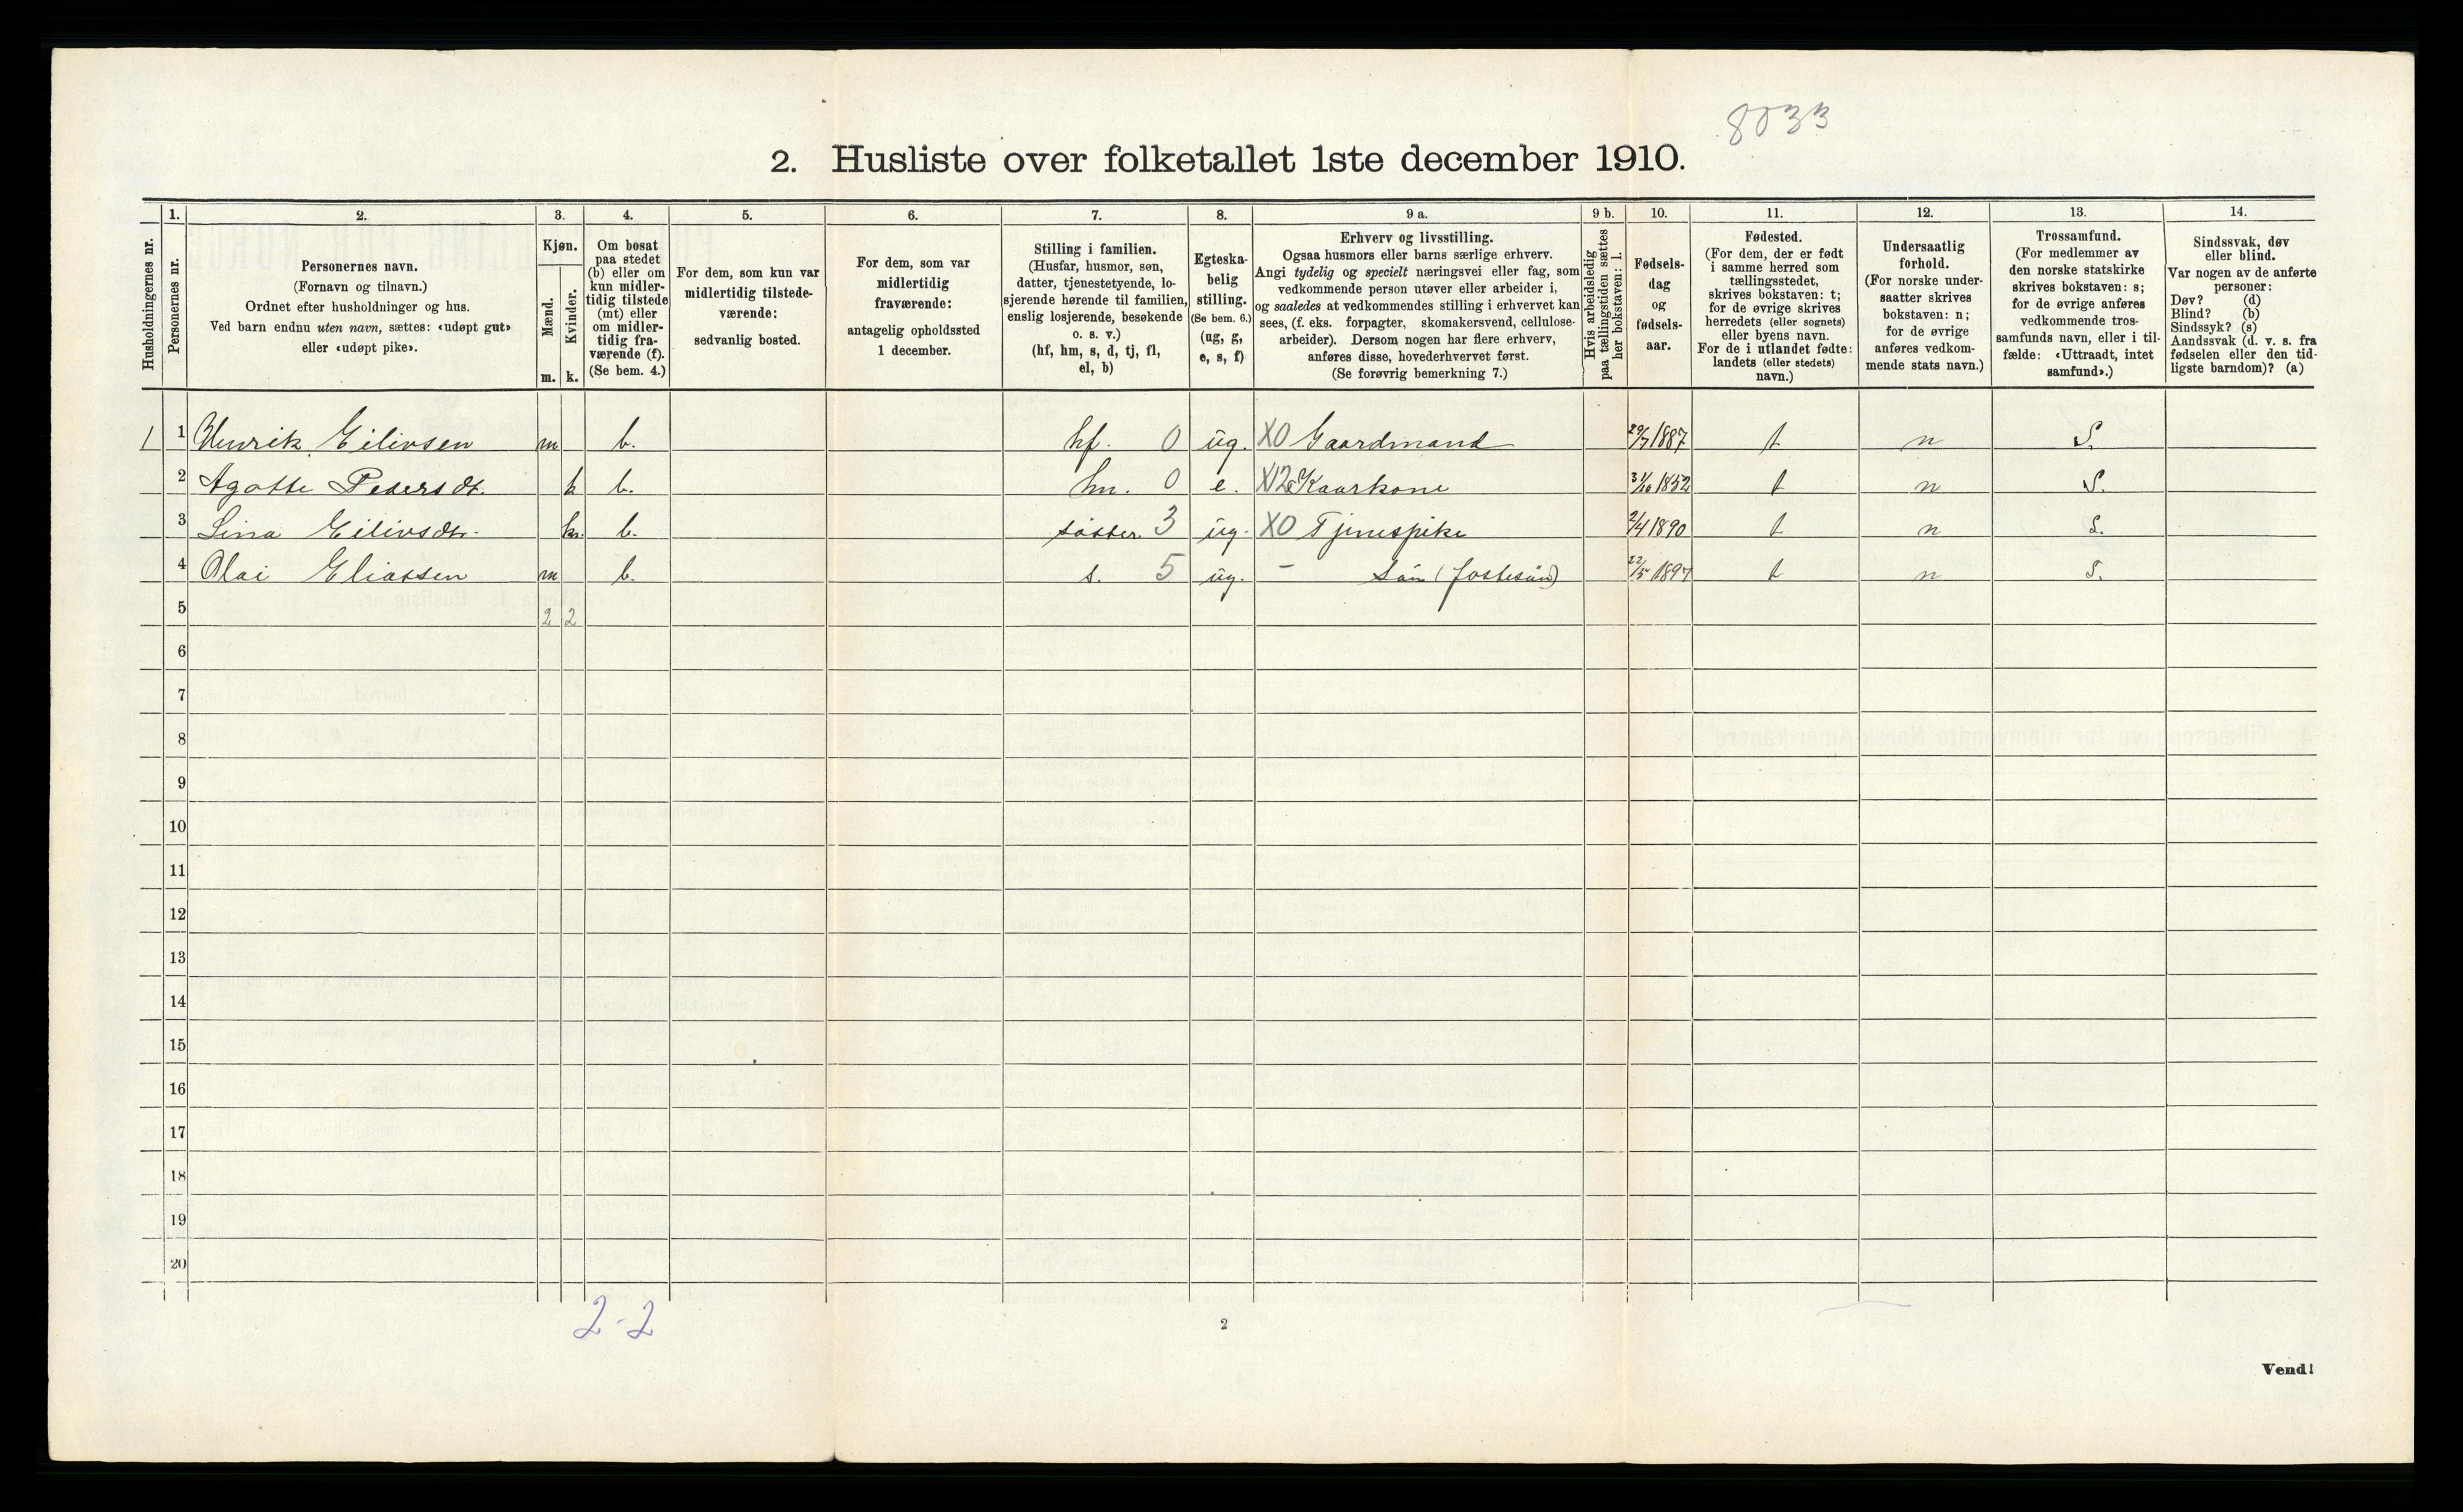 8033
2. Husliste over folketallet 1ste december 1910.
Husholdningernes nr.
1.
Personernes nr.
2.
Personernes navn.
(Fornavn og tilnavn.)
Ordnet efter husholdninger og hus.
Ved barn endnu uten navn, sættes: «udøpt gut»
eller «udøpt pike».
3.
Kjøn.
Mænd.
m.
Kvinder.
k.
4.
Om bosat
paa stedet
(b) eller om
kun midler-
tidig tilstede
(mt) eller
om midler-
tidig fra-
værende (f).
(Se bem. 4.)
5.
For dem, som kun var
midlertidig tilstede-
værende:
sedvanlig bosted.
6.
For dem, som var
midlertidig
fraværende:
antagelig opholdssted
1 december.
7.
Stilling i familien.
(Husfar, husmor, søn,
datter, tjenestetyende, lo-
sjerende hørende til familien,
enslig losjerende, besøkende
o. s. v.)
(hf, hm, s, d, tj, fl,
el, b)
8.
Egteska-
belig
stilling.
(Se bem. 6.)
(ug, g,
e, s, f)
9 a.
Erhverv og livsstilling.
Ogsaa husmors eller barns særlige erhverv.
Angi tydelig og specielt næringsvei eller fag, som
vedkommende person utøver eller arbeider i,
og saaledes at vedkommendes stilling i erhvervet kan
sees, (f. eks. forpagter, skomakersvend, cellulose-
arbeider). Dersom nogen har flere erhverv,
anføres disse, hovederhvervet først.
(Se forøvrig bemerkning 7.)
9 b.
Hvis arbeidsledig
paa tællingstiden sættes
her bokstaven: l.
10.
Fødsels-
dag
og
fødsels-
aar.
11.
Fødested.
(For dem, der er født
i samme herred som
tællingsstedet,
skrives bokstaven: t;
for de øvrige skrives
herredets (eller sognets)
eller byens navn.
For de i utlandet fødte:
landets (eller stedets)
navn.)
12.
Undersaatlig
forhold.
(For norske under-
saatter skrives
bokstaven: n;
for de øvrige
anføres vedkom-
mende stats navn.)
13.
Trossamfund.
(For medlemmer av
den norske statskirke
skrives bokstaven: s;
for de øvrige anføres
vedkommende tros-
samfunds navn, eller i til-
fælde: «Uttraadt, intet
samfund».)
14.
Sindssvak, døv
eller blind.
Var nogen av de anførte
personer:
Døv? (d)
Blind? (b)
Sindssyk? (s)
Aandssvak (d. v. s. fra
fødselen eller den tid-
ligste barndom)? (a)
1 1 Henrik Eilivsen m b. hf. 0 ug. X0 Gaardmand 29/7 1887 t n S.
2 Agotte Pedersdt. k b. hm. 0 e. X12 Kaarkone 31/10 1852 t n S.
3 Lina Eilivsdtr. k b. søster 3 ug. X0 Tjenespike 2/4 1890 t n S.
4 Olai Eliassen m b. s. 5 ug. – Søn (fostesøn) 22/5 1897 t n S.
5 2 2
6
7
8
9
10
11
12
13
14
15
16
17
18
19
20
2-2
2
Vend!